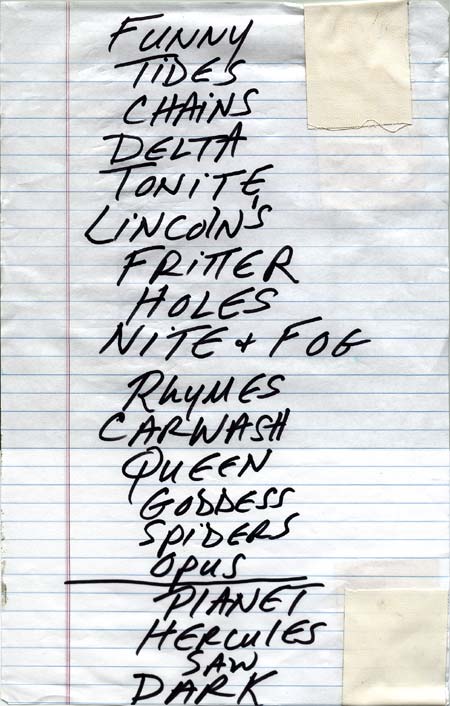 FUNNY
TIDES
CHAINS
DELTA
TONITE
LINCOLN'S
FRITTER
HOLES
NITE + FOG
RHYMES
CARWASH
QUEEN
GODDESS
SPIDERS
OPUS
PLANET
HERCULES
SAW
DARK